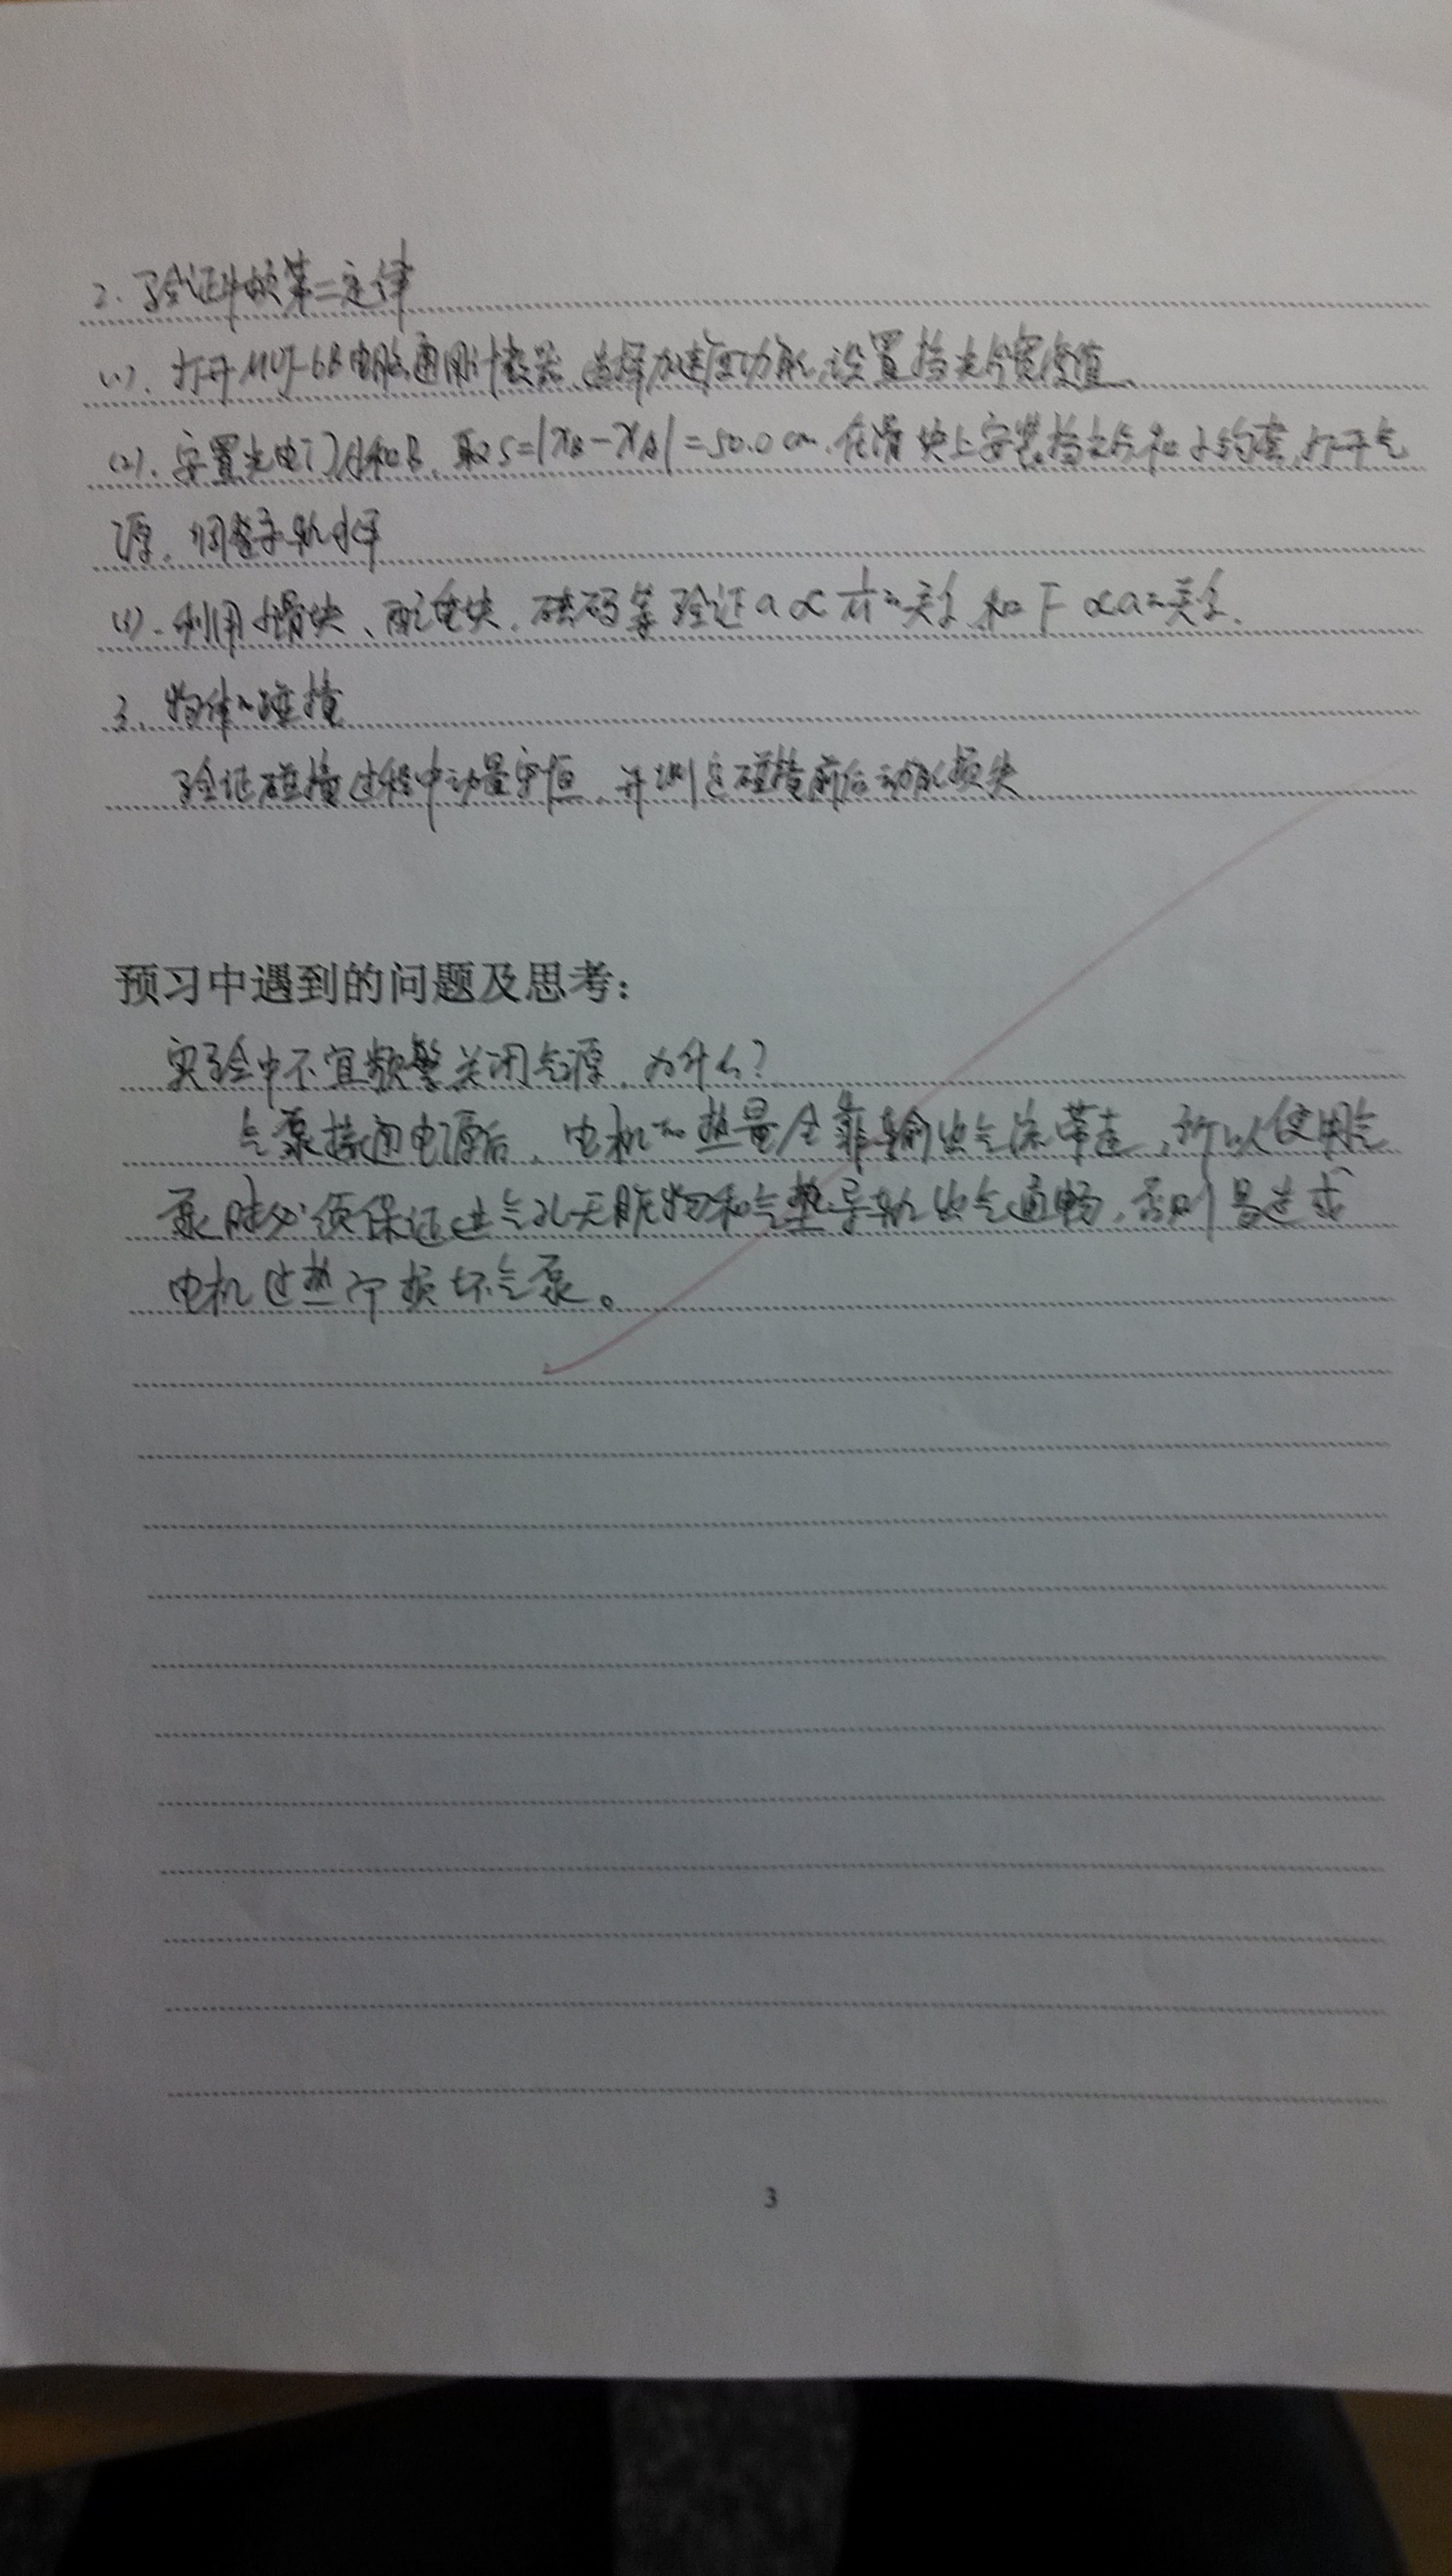 2. 验证牛顿第二定律
(1). 打开MUJ-6B电脑通用计数器,选择加速度功能,设置挡光片宽度值.
(2). 安置光电门A和B, 取S=|xB-xA|=50.0cm. 在滑块上安装挡光片和小钩套,打开气
源, 调整导轨水平
(3). 利用小滑块、配重块、砝码等验证a∝1/M的关系和F∝a的关系.
3. 物体的碰撞
验证碰撞过程中动量守恒, 并测定碰撞前后动能损失
预习中遇到的问题及思考:
实验中不宜频繁关闭气源, 为什么?
气泵接通电源后, 电机的热量全靠输出气流带走, 所以使用气
泵时必须保证进气孔无脏物和气垫导轨出气通畅, 否则易造成
电机过热而损坏气泵。
3